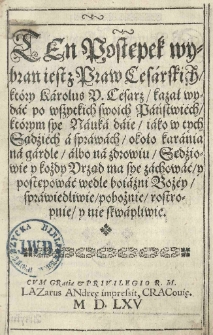 TEn Postępek wy-
bran iest z Praw Cesárskich/
ktory Károlus V. Cesarz/ kazał wy-
dáć po wszyckich swoich Páństwiech/
ktorym sye Náuká dáie/ iáko w tych
Sądziech á spráwách/ około karánia
ná gardle/ álbo ná zdrowiu/ Sędzio-
wie y kożdy Vrząd ma sye záchowáć/ y
postępowáć wedle boiáźni Bożey/
spráwiedliwie/ pobożnie/ rostro-
pnie/ y nie skwápliwie.
CVM Gratia & PRIVILEGIO R. M.
LAZarus ANdreę impressit, CRACouię.
M D. LXV